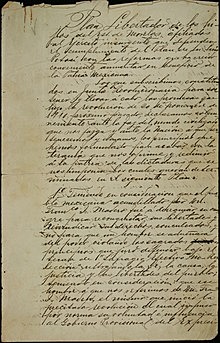 Plan Libertador de los
hijos del Est. de Morelos, afiliados
al Ejército insurgente que defiende
el cumplimiento del Plan de San Luis
Potosí con las reformas que ha creido
conveniente aumentar en beneficio de
la Patria Mexicana.
Los que subscribimos, constituidos
en Junta Revolucionaria para sos-
tener y llevar á cabo las promesas que
hizo la Revolucion de 20 de Noviembre de
1910, próximo pasado, declaramos solemne-
mente ante la faz del mundo civilizado
que nos juzga y ante la Nación á que per-
tenecemos y amamos, los principios que
hemos formulado para acabar con la
tiranía que nos oprime y redimir
á la Patria de las dictaduras que se
nos imponen las cuales quedan de-
terminadas en el siguiente Plan:
1º Teniendo en consideración que el pue-
blo mexicano acaudillado por Don
Francisco I. Madero fué á derramar su san-
gre para reconquistar sus libertades
y reivindicar sus derechos conculcados,
y no para que un hombre se adueñara
del poder violando los sagrados
principios que juró defender bajo el
lema de "Sufragio Efectivo No Ree-
lección" ultrajando la fé, la causa, la
justicia y las libertades del pueblo
teniendo en consideración que ese
hombre á que nos referimos es Don Fran-
cisco I. Madero, el mismo que inició la
precitada revolución el cual impuso
por norma su voluntad é influencia
al Gobierno Provisional del Ex-presi